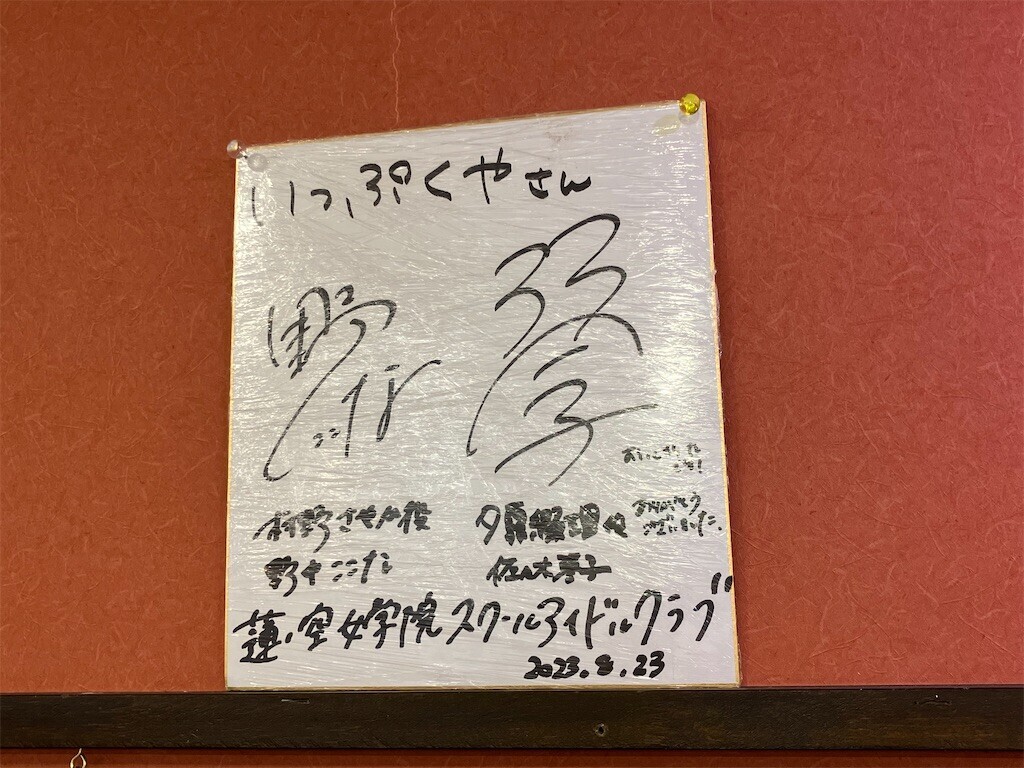 いっぷくやさん
野 ここな
村野さやか役
野中ここな
夕霧綴理役
佐々木琴子
おいしかったです!
ありがとうございました。
蓮ノ空女学院スクールアイドルクラブ
2023.8.23